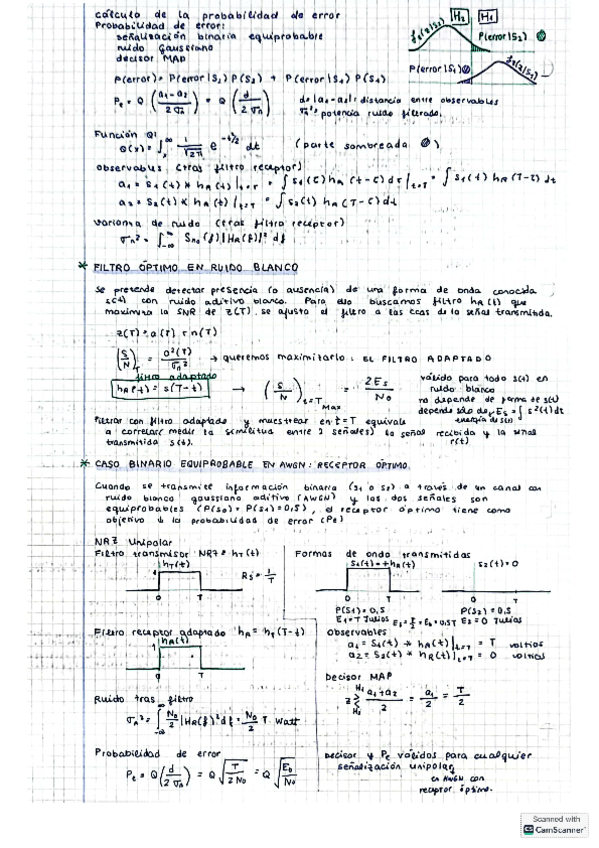 cálculo de la probabilidad de error
Probabilidad de error:
señalización binaria equiprobable
ruido Gaussiano
decisor MAP
H₂ H₁
f₂(z/s₂)
P(error|S₂)
P(error|S₁)
f₁(z/s₁)
P(error) = P(error|S₂) P(S₂) + P(error|S₁) P(S₁)
Pe = Q (a₁-a₂ / 2σn) = Q (d / 2σn)
d = |a₁-a₂| = distancia entre observables
σn² = potencia ruido filtrado.
Función Q:
Q(x) = ∫ₓ^∞ 1/√2π e^-t²/2 dt (parte sombreada)
observables (tras filtro receptor)
a₁ = S₁(t) * hR (t)|t=T = ∫ S₁(τ) hR (t-τ) dτ|t=T = ∫ S₁(τ) hR (T-τ) dτ
a₂ = S₂(t) * hR (t)|t=T = ∫ S₂(τ) hR (T-τ) dτ
varianza de ruido (tras filtro receptor)
σn² = ∫-∞^∞ Sn₀(f) |HR(f)|² df
* FILTRO ÓPTIMO EN RUIDO BLANCO
se pretende detectar presencia (o ausencia) de una forma de onda conocida
s(t) con ruido aditivo blanco. Para ello buscamos filtro hR(t) que
maximiza la SNR de z(T). se ajusta el filtro a las ccas de la señal transmitida.
z(T) = a(T) + n(T)
(S/N)T = a²(T)/σn² → queremos maximizarlo: EL FILTRO ADAPTADO
filtro adaptado
hR(t) = s(T-t) → (S/N)t=T Max = 2Es/N₀
válido para todo s(t) en
ruido blanco
no depende de forma de s(t)
depende sólo de Es = ∫ s²(t) dt
energía de s(t)
Filtrar con filtro adaptado y muestrear en t=T equivale
a correlar (medir la similitud entre 2 señales) la señal recibida y la señal
r(t)
transmitida s(t).
* CASO BINARIO EQUIPROBABLE EN AWGN: RECEPTOR ÓPTIMO.
Cuando se transmite información binaria (s₁ o s₂) a través de un canal con
ruido blanco gaussiano aditivo (AWGN) y las dos señales son
equiprobables (P(S₂) = P(S₁) = 0,5), el receptor óptimo tiene como
objetivo ↓ la probabilidad de error (Pe)
NRZ Unipolar
Filtro transmisor NRZ = hT(t)
hT(t)
1
Rs = 1/T
0 T
Formas de onda transmitidas
s₁(t) = +hT(t)
s₂(t) = 0
0 T 0 T
P(S₁) = 0,5
P(S₂) = 0,5
E₁ = T Julios
E₂ = 0 Julios
Filtro receptor adaptado hR = hT(T-t)
hR(t)
1
0 T
observables
a₁ = S₁(t) * hR(t)|t=T = T voltios
a₂ = S₂(t) * hR(t)|t=T = 0 voltios
Decisor MAP
z ≷ a₁+a₂ / 2 = a₁/2 = T/2
H₁
H₂
Ruido tras filtro
σn² = ∫-∞^∞ N₀/2 |HR(f)|² df = N₀/2 T Watt
Probabilidad de error
Pe = Q (d / 2σn) = Q √(T / 2N₀) = Q √(Eb / N₀)
Decisor y Pe válidos para cualquier
señalización unipolar
en AWGN con
receptor óptimo.
Scanned with
CamScanner